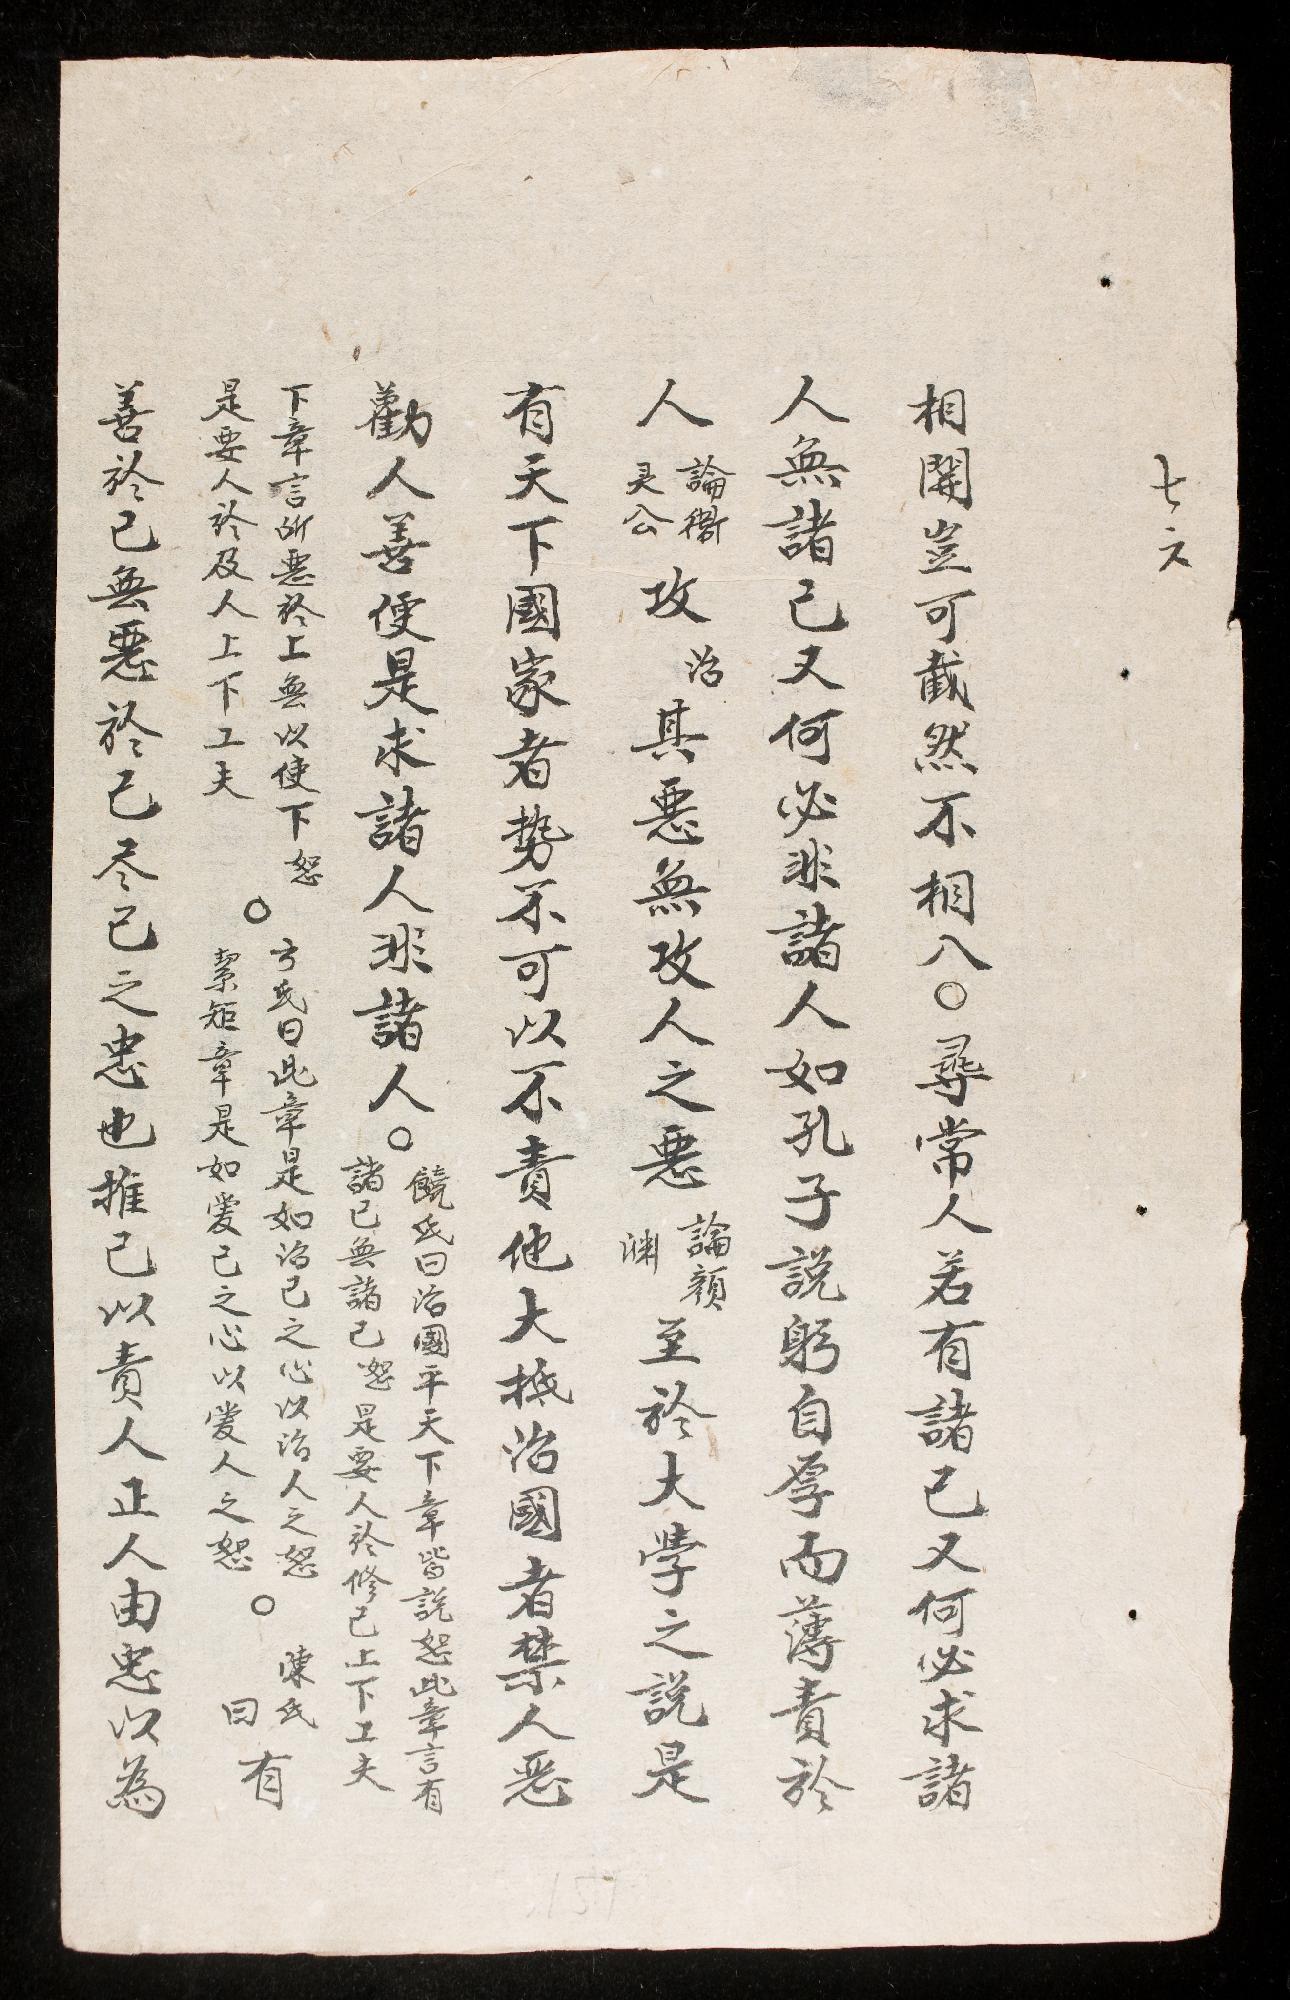 七六
相開豈可截然不相八〇尋常人若有諸己又何必求諸
人無諸己又何必非諸人如孔子説躬自厚而薄責於
人論衛灵公攻治其悪無攻人之悪論顔渊至於大学之説是
有天下國家者勢不可以不責他大抵治國者禁人悪
勸人善便是求諸人非諸人〇饒氏曰治國平天下章皆説恕此章言有
諸己無諸己恕是要人於修己上下工夫
下章言所悪於上無以使下恕
是要人於及人上下工夫
〇方氏曰此章是如治己之心以治人之恕
絜矩章是如愛己之心以愛人之恕
〇陳氏曰有
善於己無悪於己尽己之忠也推己以責人正人由忠以為